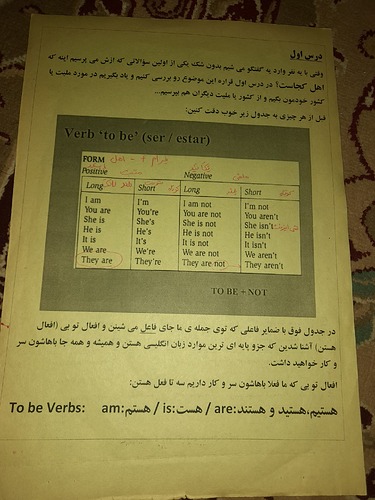 درس اول
وقتی با یه نفر وارد یه گفتگو می شیم بدون شک یکی از اولین سؤالاتی که ازش می پرسیم اینه که
اهل کجاست؟ در درس اول قراره این موضوع رو بررسی کنیم و یاد بگیریم در مورد ملیت یا
کشور خودمون بگیم و از کشور یا ملیت دیگران هم بپرسیم...
قبل از هر چیزی به جدول زیر خوب دقت کنین:
Verb 'to be' (ser / estar)
FORM
Positive Negative
Long Short Long Short
I am I'm I am not I'm not
You are You're You are not You aren't
She is She's She is not She isn't
He is He's He is not He isn't
It is It's It is not It isn't
We are We're We are not We aren't
They are They're They are not They aren't
TO BE + NOT
در جدول فوق با ضمایر فاعلی که توی جمله ی ما جای فاعل می شینن و افعال تو بی (افعال
هستن) آشنا شدین که جزو پایه ای ترین موارد زبان انگلیسی هستن و همیشه و همه جا باهاشون سر و
کار خواهید داشت.
افعال تو بی که ما فعلا باهاشون سر و کار داریم سه تا فعل هستن:
To be Verbs: am:هستم / is:هست / are:هستیم،هستید و هستند